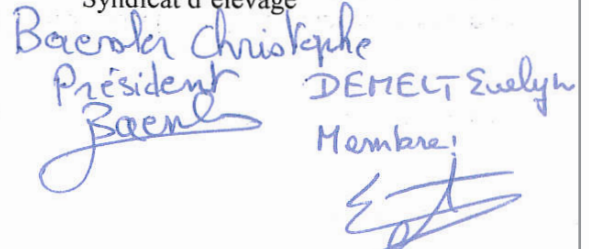 Syndicat d'élevage
Christophe
Président
DEMELT Evelyn
Membre